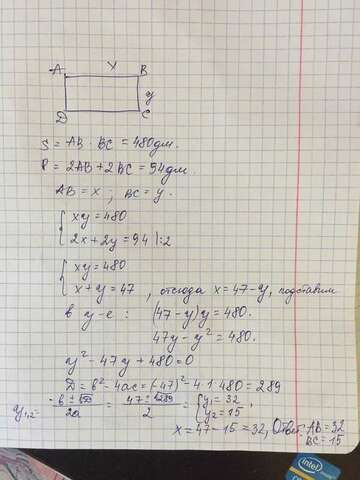 A x B
y
D C
S = AB · BC = 480дм.
P = 2AB + 2BC = 94дм
AB = x ; BC = y.
{ xy = 480
2x + 2y = 94 |:2
{ xy = 480
x + y = 47 , отсюда x = 47 - y, подставим
в у-е : (47 - y)y = 480.
47y - y² = 480.
y² - 47y + 480 = 0
D = b² - 4ac = (-47)² - 4·1·480 = 289
y₁,₂ = -b ± √D / 2a = 47 ± √289 / 2 = { y₁ = 32
y₂ = 15 .
x = 47 - 15 = 32, Ответ: AB = 32
BC = 15
intel